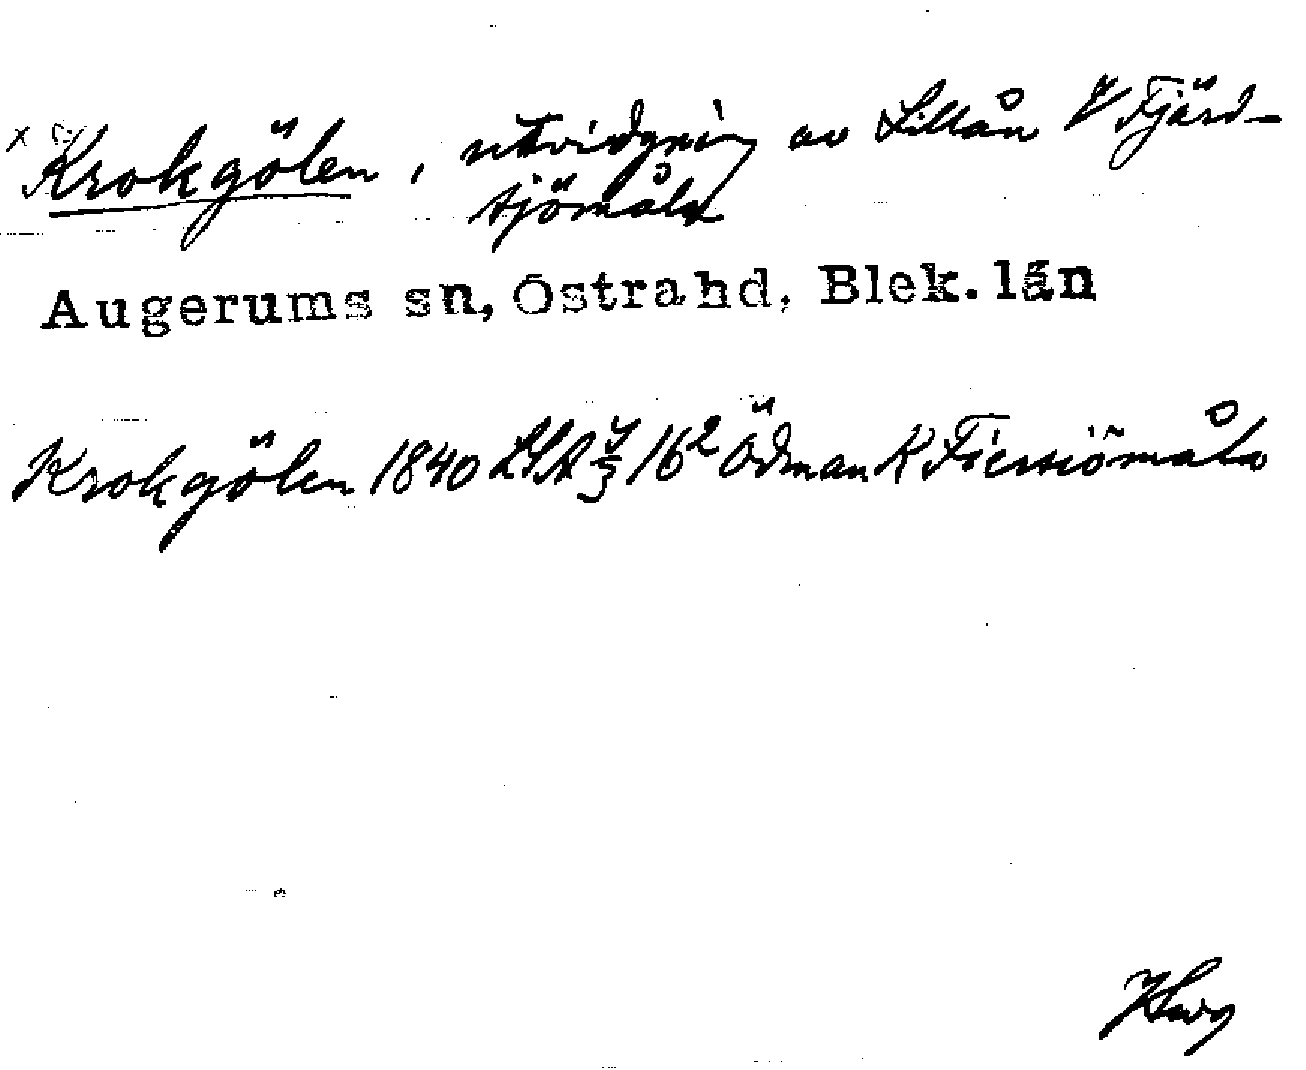 x Krokgölen, utvidgning av Lillån V Fjärd-
sjömåla
Augerums sn, Östra hd, Blek. län
Krokgölen 1840 LSA 16² Ödman K Fierssiömåla